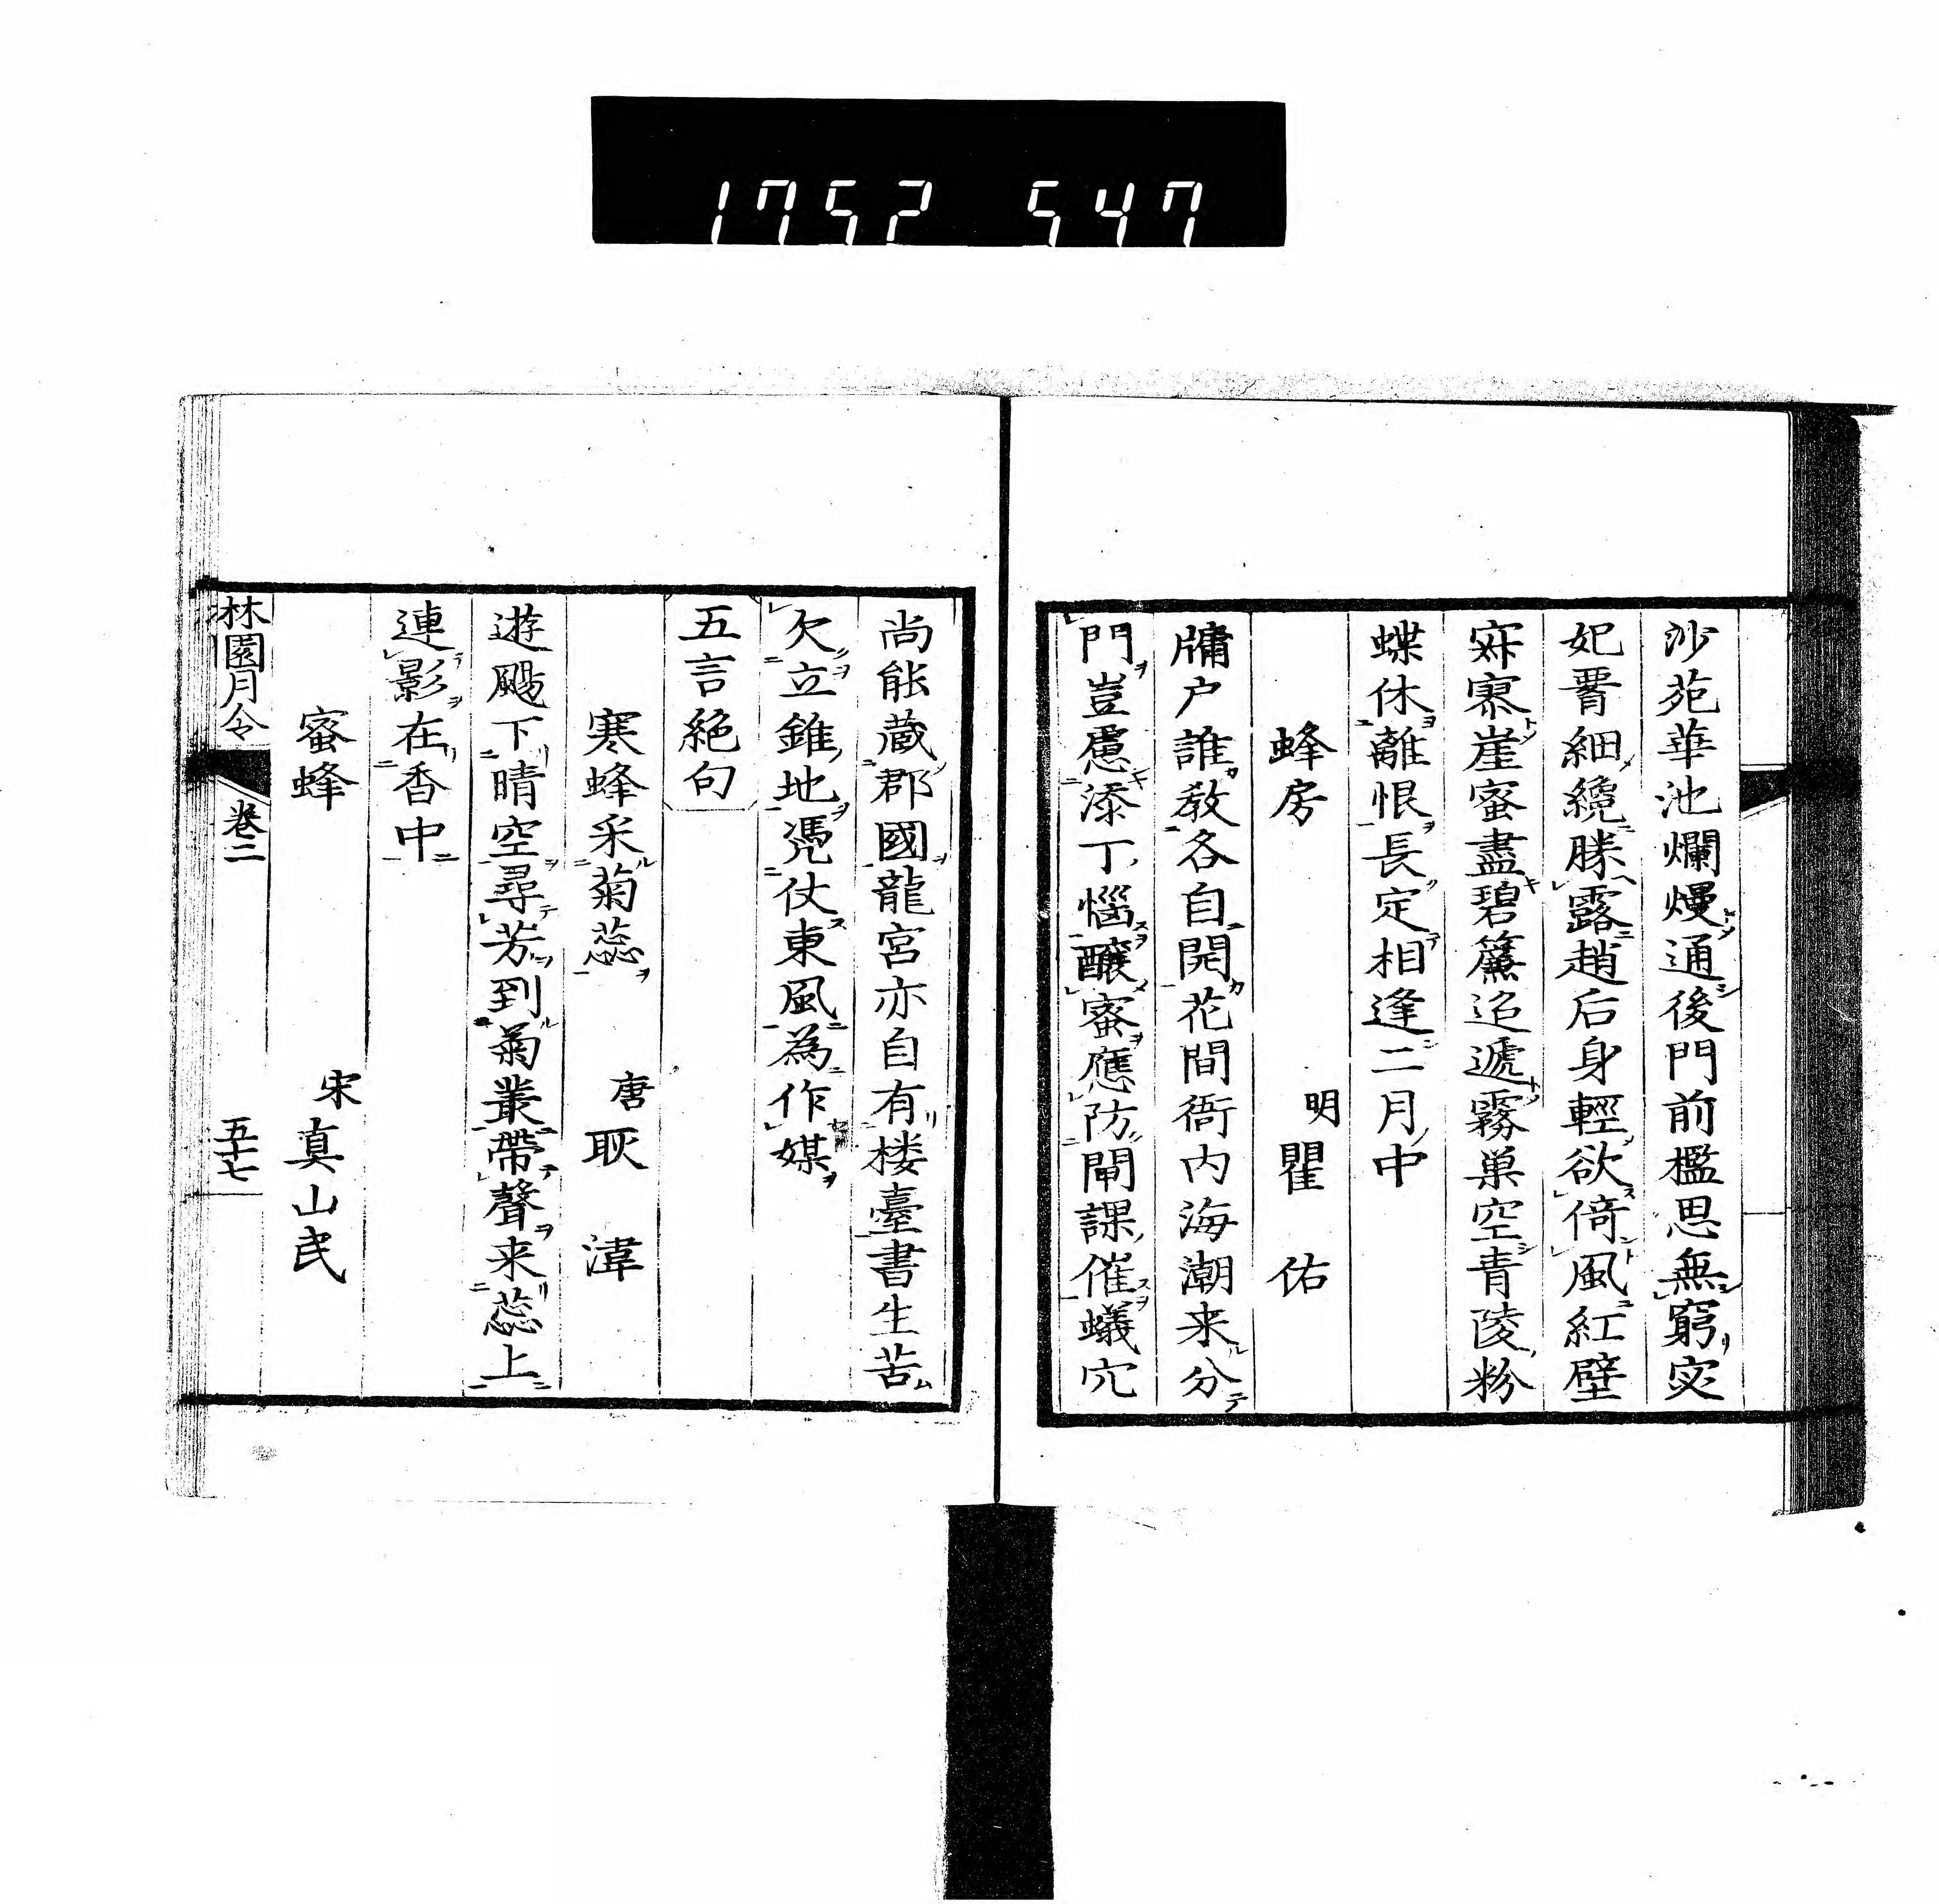 1752 547
沙苑華池爛熳通後門前檻思無窮宓
妃腰細纔勝露趙后身輕欲倚風紅壁
寂寥崖蜜盡碧簾迢遞霧巢空青陵粉
蝶休離恨長定相逢二月中
蜂房 明瞿佑
牗户誰敎各自開花間衙内海潮来分
門豈慮添丁惱釀蜜應防閙課催蟻穴
尚能蔵郡國龍宮亦自有楼臺書生苦
欠立錐地憑仗東風為作媒
五言絶句
寒蜂采菊蕊 唐耿湋
遊颺下晴空尋芳到菊叢帶聲来蕊上
連影在香中
蜜蜂 宋真山民
林園月令 卷二 五十七